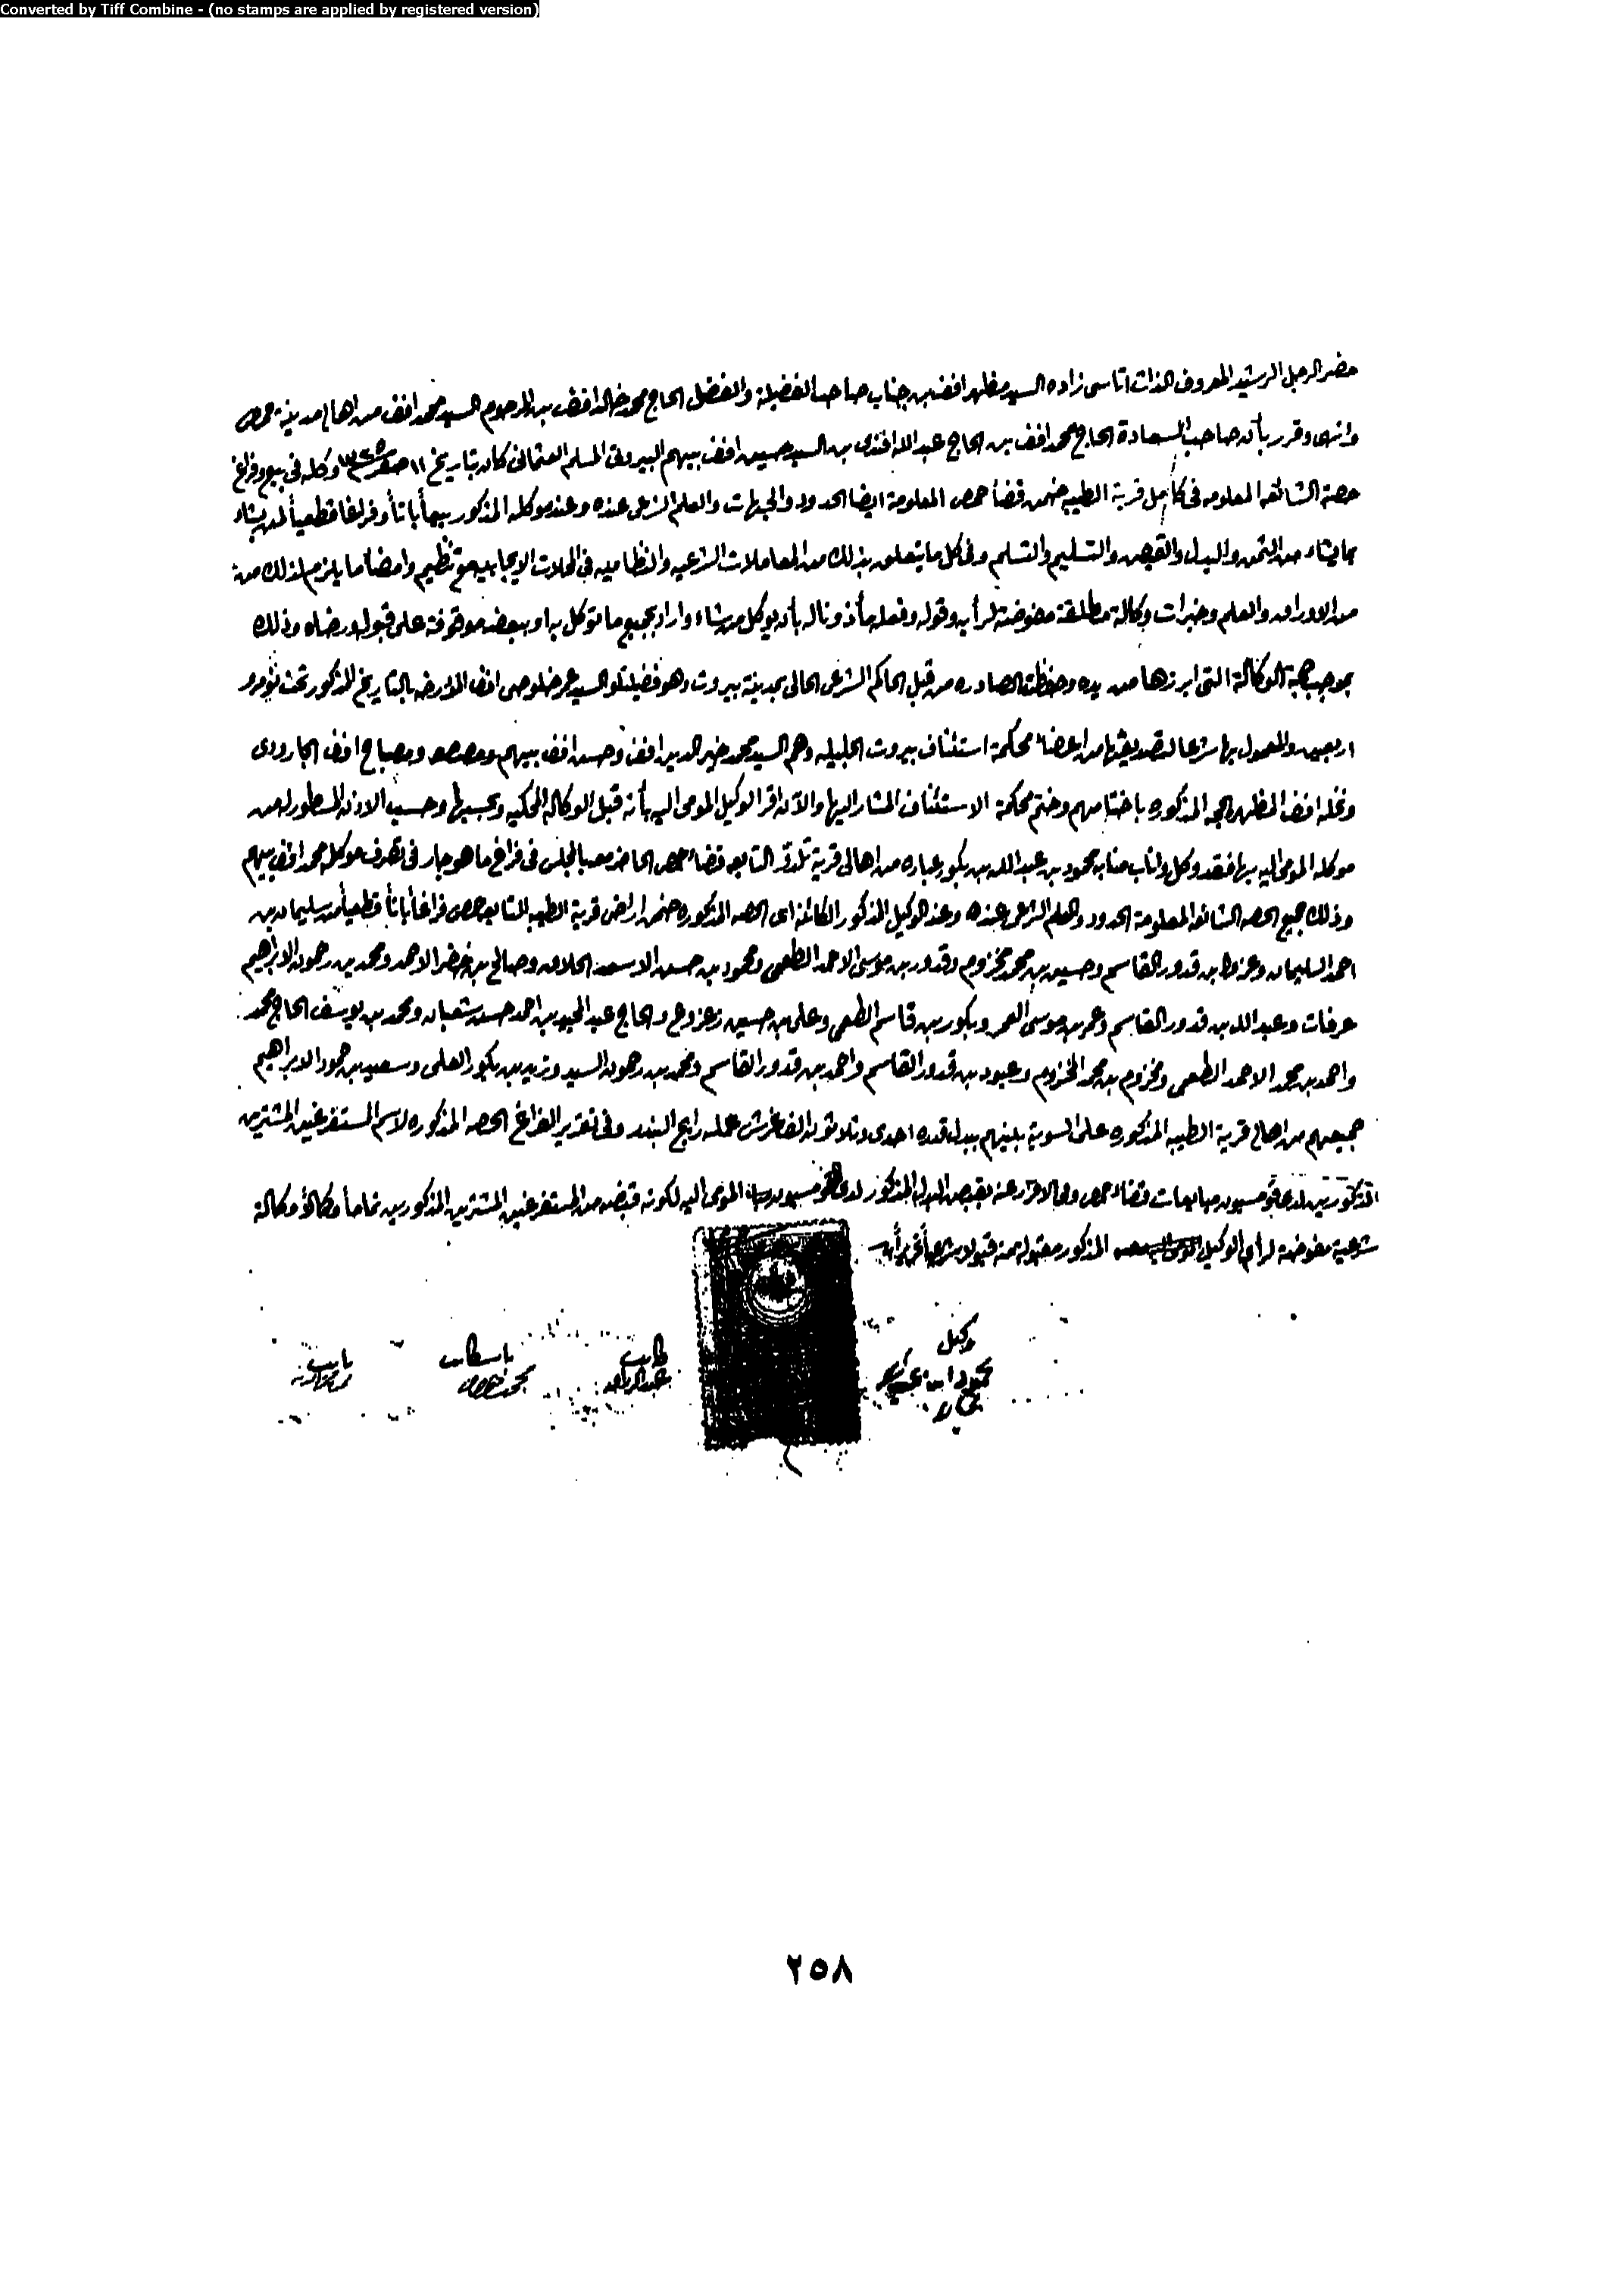 Converted by Tiff Combine - (no stamps are applied by registered version)
حضر الرجل الرشيد المعروف الذات اتاسى زاده السيد مظهر افندى بن جناب صاحب الفضيلة والفضل الحاج محمد خالد افندى بن المرحوم السيد محمد افندى من اهالى مدينة حمص
وانهى وقرر بأن صاحب السعادة الحاج محمد افندى بن الحاج عبد الله افندى بن السيد حسين افندى بيهم البيروتى المسلم العثمانى كان بتاريخ ١١ صفر وكله فى بيع وفراغ
حصته الشائعه المعلومه فى كامل قرية الطيبه ضمن قضاء حمص المعلومة ايضا الحدود والجهات والعلم الشرعى عنده وعند موكله المذكور بيعاً باتاً وفراغا قطعياً لمن يشاء
بما يشاء من الثمن والبدل والقبض والتسليم والتسلم وفى كل ما يتعلق بذلك من المعاملات الشرعيه والنظاميه فى المحلات الايجابيه مع تنظيم وامضاء ما يلزم لذلك من
من الاوراق والعلم وخبرات وكالة مطلقة مفوضة لرأيه وقوله وفعله مأذونا له بأن يوكل من شاء واراد بجميع ما توكل به او ببعضه موقوفة على قبوله ورضاه وذلك
بموجب حجة الوكالة التى ابرزها من يده وحفظته الصادره من قبل الحاكم الشرعى الحالى بمدينة بيروت وهو فضيلتلو السيد عمر خلوصى افندى المؤرخه بالتاريخ المذكور تحت نومرو
اربعين والمعمول بها شرعا لتصديقها من اعضاء محكمة استئناف بيروت الجليله وهم السيد محمد خير الدين افندى وحسن افندى بيهم ومصباح افندى الجارودى
ونخله افندى المظهره الحجه المذكوره باختامهم وختم محكمة الاستئناف المشار اليها والآن اقر الوكيل المومى اليه بأنه قبل الوكالة المحكيه وبحسبها وحسب الاذن المسطور له من
موكله المومى اليه بها فقد وكل واناب منابه محمود بن عبد الله بن بكور عباره من اهالى قرية تلدو التابعه قضاء حمص الحاضر معه بالمجلس فى فراغ ما هو جار فى تصرف موكله محمد افندى بيهم
وذلك جميع الحصه الشائعه المعلومة الحدود والعلم الشرعى عنده وعند الوكيل المذكور الكائنه اى الحصه المذكوره ضمن اراضى قرية الطيبه التابعه حمص فراغاً باتاً قطعياً من سليمان بن
احمد السليمان وعزو بن قدور القاسم وحسين بن محمد مخزوم وقدور بن موسى الاحمد الطعمى ومحمود بن حسن الاسعد الحلاق وصالح بن خضر الاحمد ومحمد بن رحمون الابراهيم
عرفات وعبد الله بن قدور القاسم وعمر بن موسى العمر وبكور بن قاسم الطعمى وعلى بن حسين زعزوع والحاج عبد المجيد بن احمد حسن شعبان ومحمد بن يوسف الحاج محمد
واحمد بن محمد الاحمد الطعمى ومخزوم بن محمد المخزوم وعبود بن قدور القاسم واحمد بن قدور القاسم ومحمد بن رحمون السيد وزيد بن بكور العلى وسعيد بن حمود الابراهيم
جميعهم من اهالى قرية الطيبه المذكوره على السوية بينهم ببدل قدره احدى وثلاثون الف غرش عمله رايج البندر وفى تقدير الفراغ الحصه المذكوره لاسم المستفرغين المشترين
المذكورين لدى قومسيون مبايعات قضاء حمص وفى الاقرار عنه بقبض البدل المذكور لدى القومسيون المومى اليه لكونه قبضه من المستفرغين المشترين المذكورين تماماً وكمالاً وكالة
شرعية مفوضة لرأى الوكيل المذكور مقبولة منه قبولا شرعياً تحريراً
وكيل
محمود ابن عبد الله
عباره
كاتب
نايب
٢٥٨